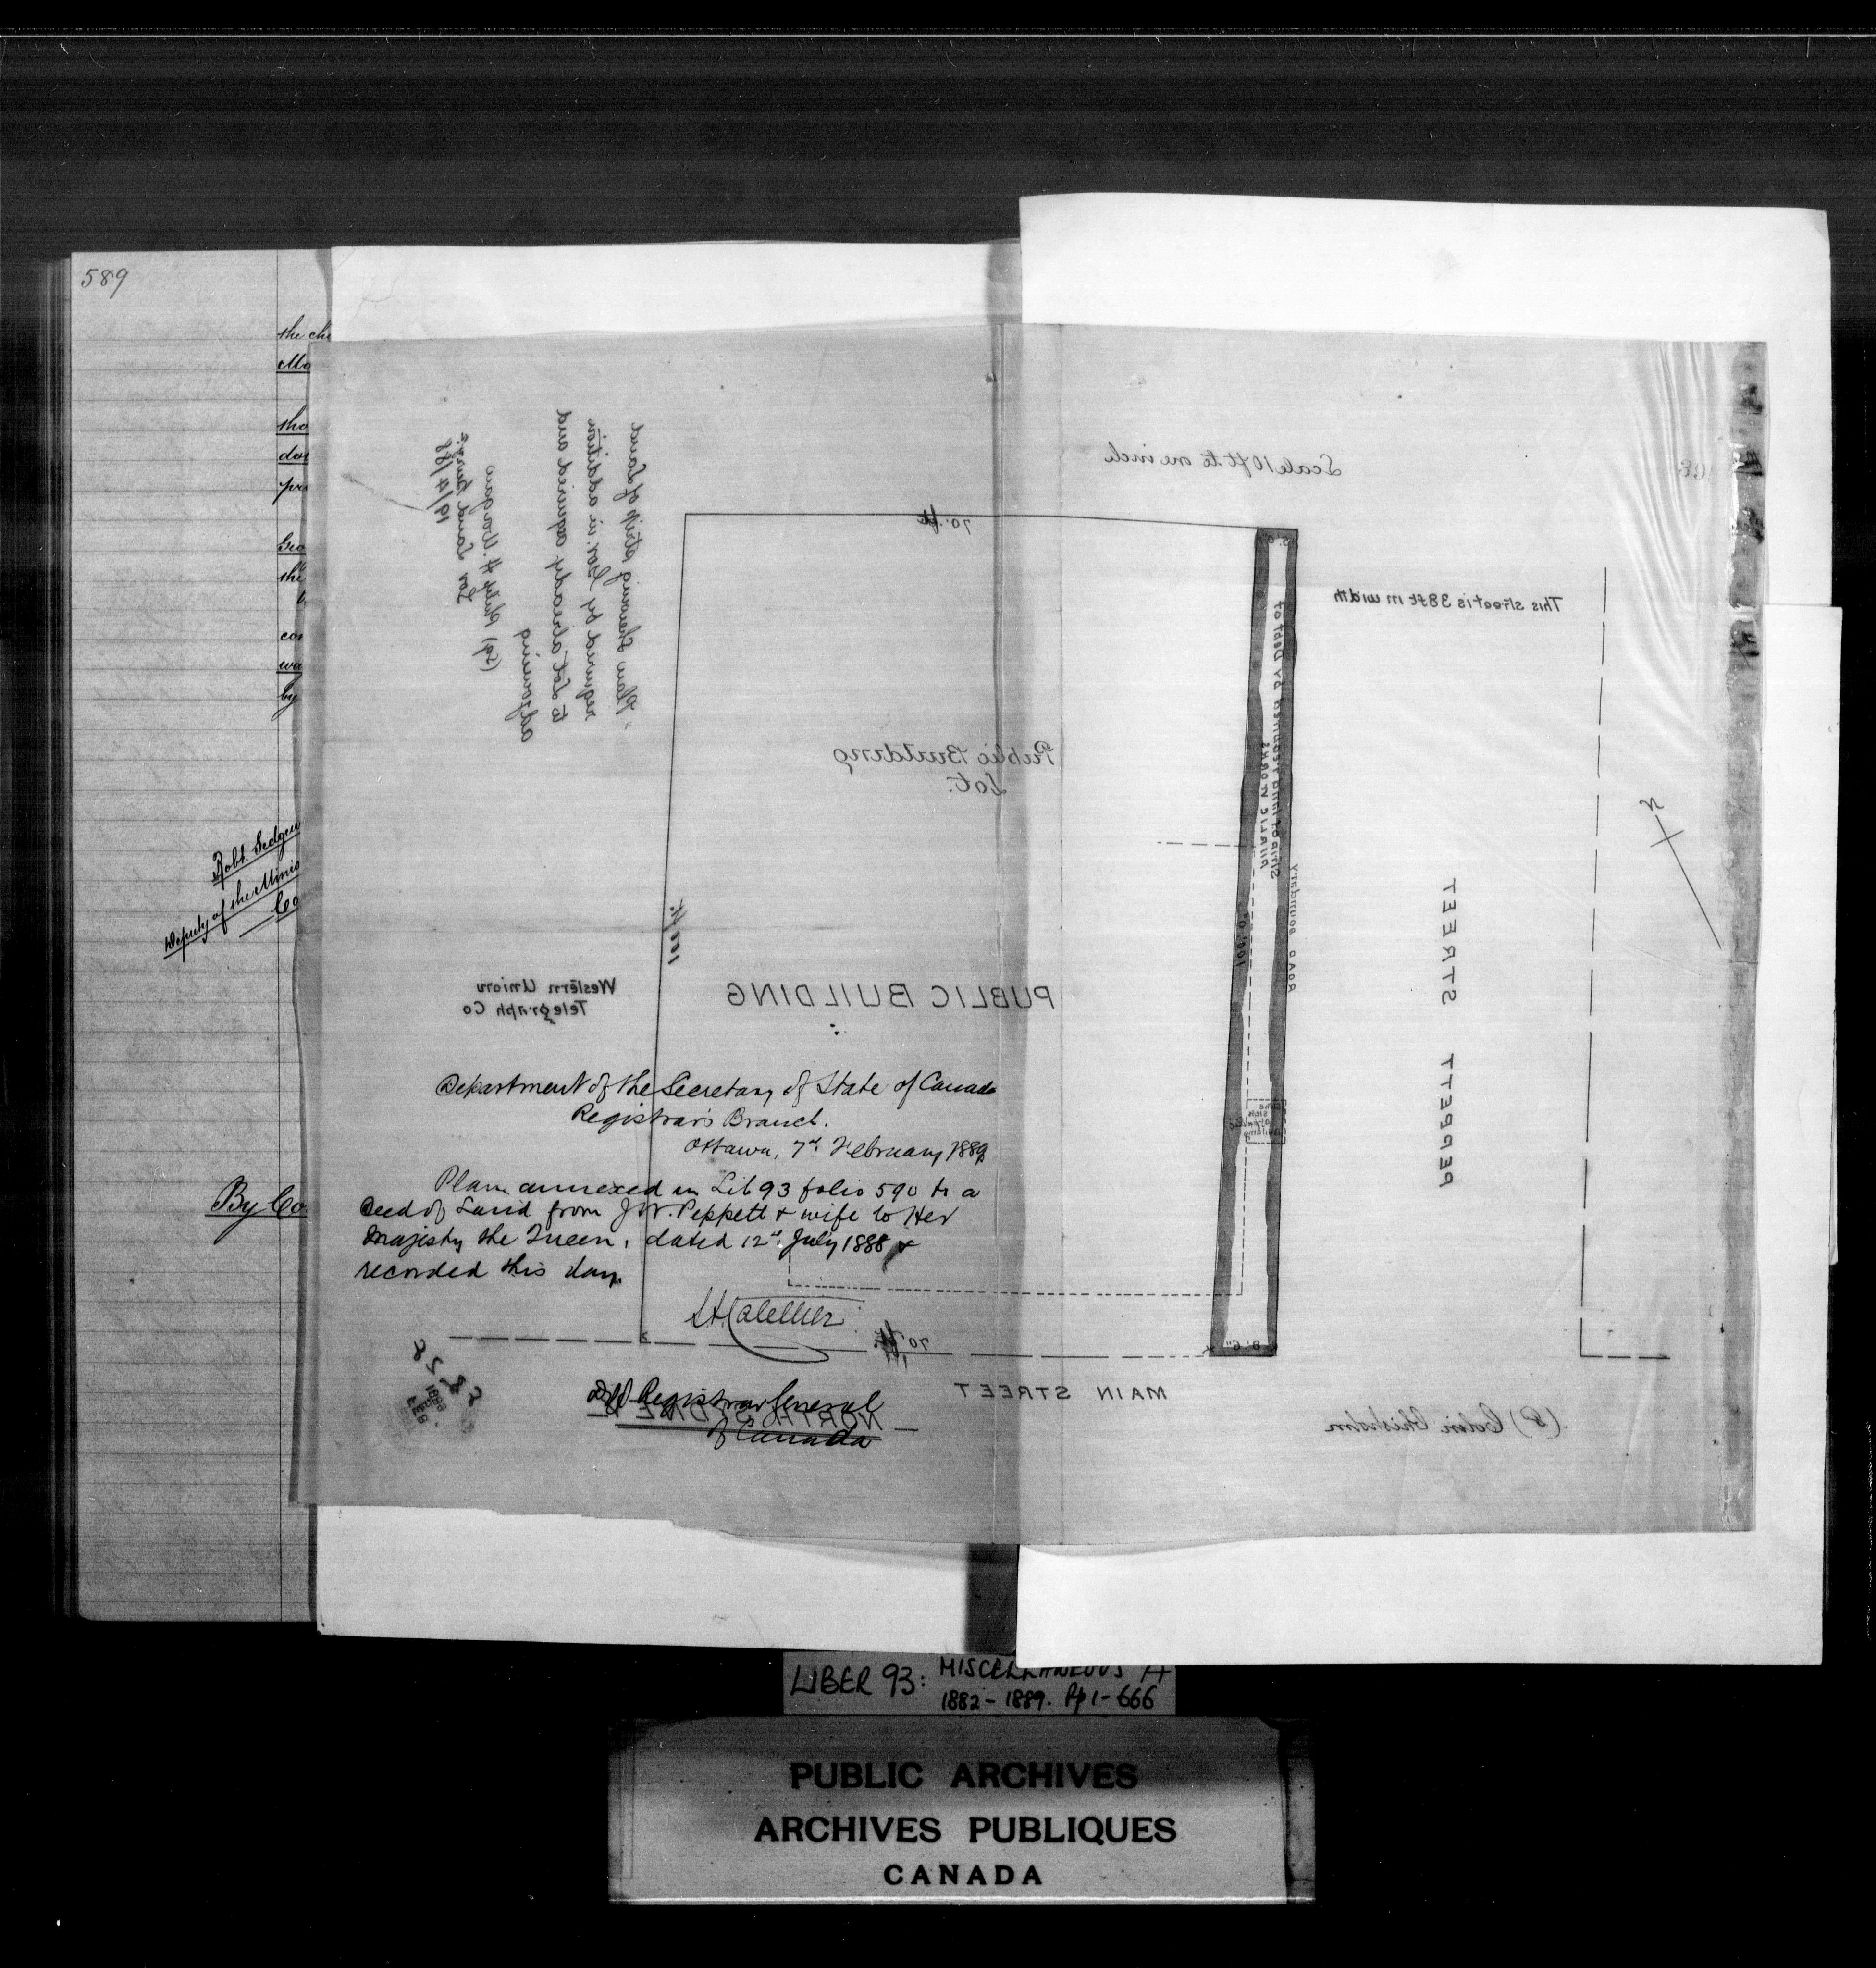 589
the
Mo
tho
pro
Geo
the
con
wa
by
Robt. Sedgew
Deputy of the Minis
Co
By Co
Scale 10 ft to one inch
70. ft
This street is 38 ft in width
"Plan shewing strip of Land
required by Gov. in addition
to Lot already acquired and
adjoining
Philip H.
19/4/88
Public Building
Lot.
Strip of land required by Dept of
Public Works
100'.0"
Road Boundary
PEPPETT STREET
N
Western Union
Telegraph Co
PUBLIC BUILDING
Department of the Secretary of State of Canada
Registrar's Branch.
Ottawa, 7th February 1889
Plan annexed in Lib 93 folio 590 to a
Deed of Land from J.W. Peppett & wife to Her
Majesty the Queen, dated 12th July 1888 &
recorded this day.
70. ft
8'.6"
MAIN STREET
NORTH SYDNEY
Registrar General
of Canada
(S) Colin Chisholm
LIBER 93: MISCELLANEOUS A
1882 - 1889. Pp 1 - 666
PUBLIC ARCHIVES
ARCHIVES PUBLIQUES
CANADA